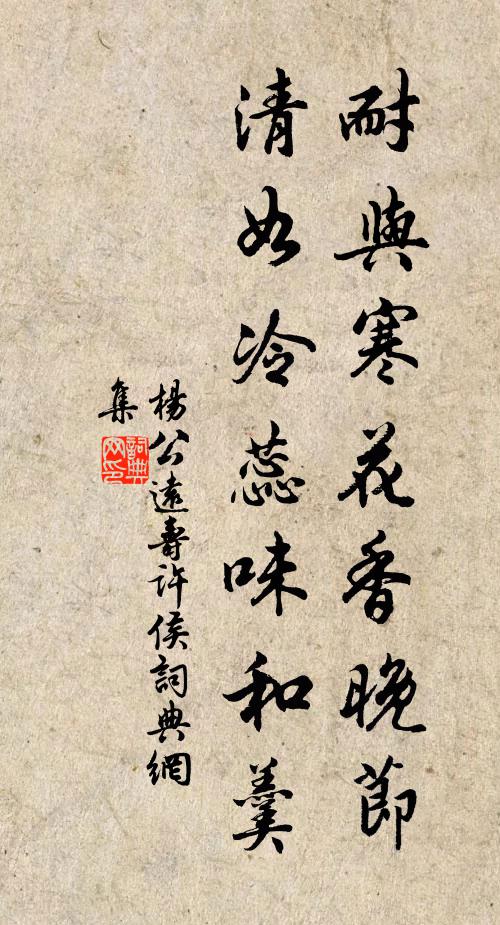 耐與寒花香晚節
清如冷蕊味和羹
楊公遠壽許侯詞典網
集
詞典網印